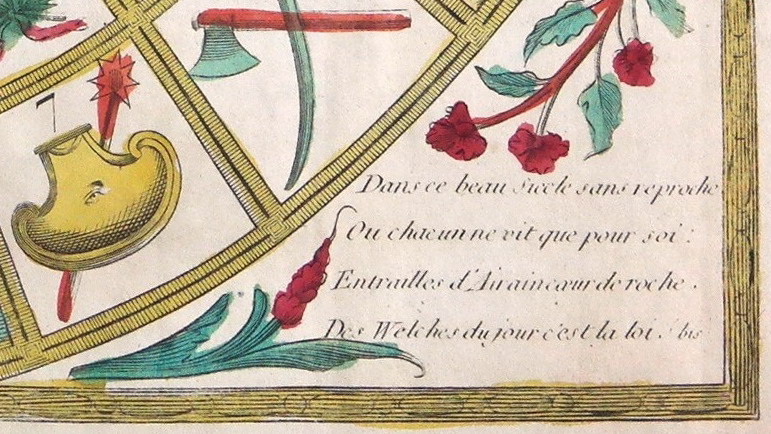 7
Dans ce beau siecle sans reproche
Ou chacun ne vit que pour soi :
Entrailles d'Airain cœur de roche .
Des Welches du jour c'est la loi . bis